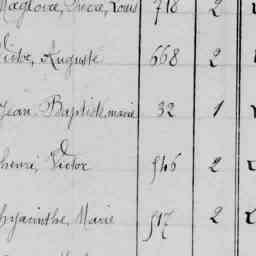 Magloire, Désiré, Louis 718 2
Victor, Auguste 668 2
Jean Baptiste marie 32 1
henri, Victor 546 2
hyacinthe, Marie 517 2